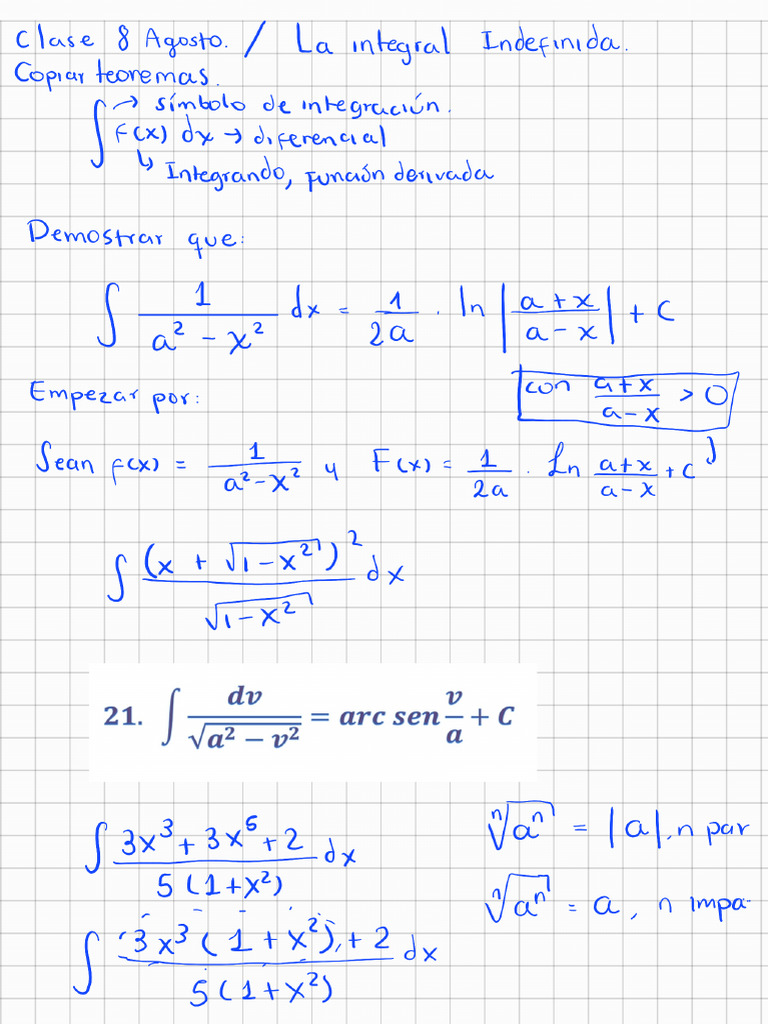 Clase 8 Agosto. / La integral Indefinida.
Copiar teoremas.
∫ → símbolo de integración.
F(x) dx → diferencial
↳ Integrando, función derivada
Demostrar que:
∫ 1/(a² - x²) dx = 1/2a · ln |(a+x)/(a-x)| + C
Empezar por:
con (a+x)/(a-x) > 0
Sean f(x) = 1/(a²-x²) y F(x) = 1/2a · Ln (a+x)/(a-x) + C
∫ (x + √(1-x²))²/√(1-x²) dx
21. ∫ dv/√(a² − v²) = arc sen v/a + C
∫ (3x³ + 3x⁵ + 2)/(5(1+x²)) dx
ⁿ√aⁿ = |a|, n par
ⁿ√aⁿ = a, n impa
∫ (3x³(1+x²) + 2)/(5(1+x²)) dx